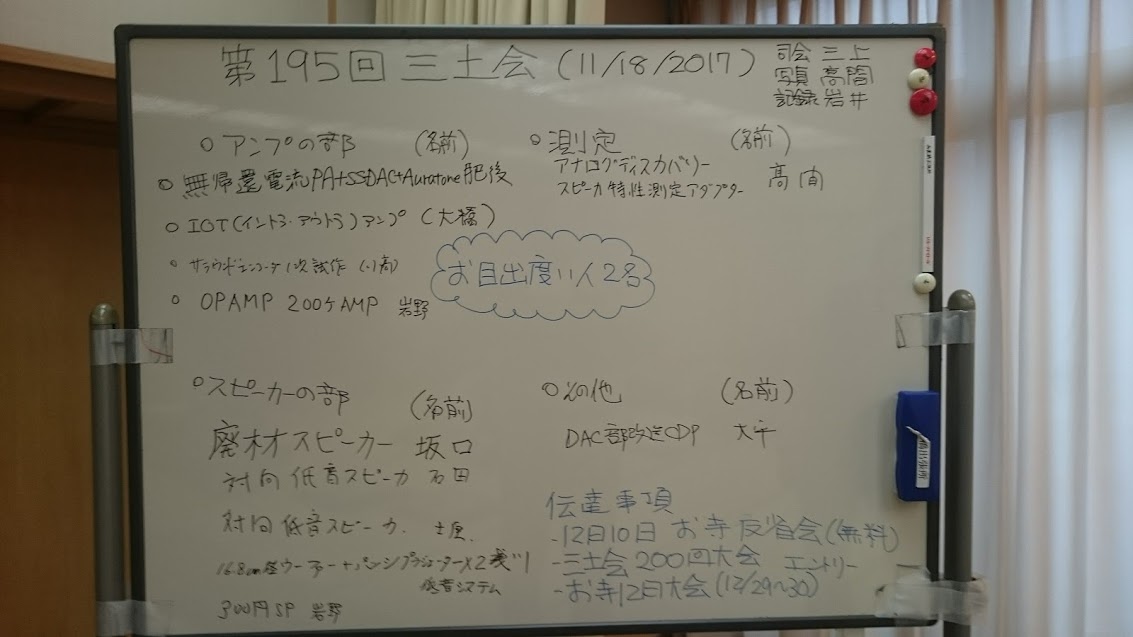 第195回 三土会 (11/18/2017)
司会 三上
写真 高間
記録 岩井
○ アンプの部 (名前)
○ 無帰還電流PA+SSDAC+Auratone 肥後
○ IOT(イントラ・アウトラ)アンプ (大橋)
○ サラウンドエンコーダ1次試作
○ OPAMP 200ケAMP 岩野
お目出度い人2名
○ 測定 (名前)
アナログディスカバリー
スピーカ特性測定アダプター 高間
○ スピーカーの部 (名前)
廃材スピーカー 坂口
対向低音スピーカ 石田
対向低音スピーカ. 土屋
16.8cm径ウーファー+パッシブラジエーター×2 浅川
低音システム
300円SP 岩野
○ その他 (名前)
DAC部改造CDP
伝達事項
-12月10日 お寺反省会(無料)
-三土会200回大会 エントリー
-お寺12月大会(12/29~30)